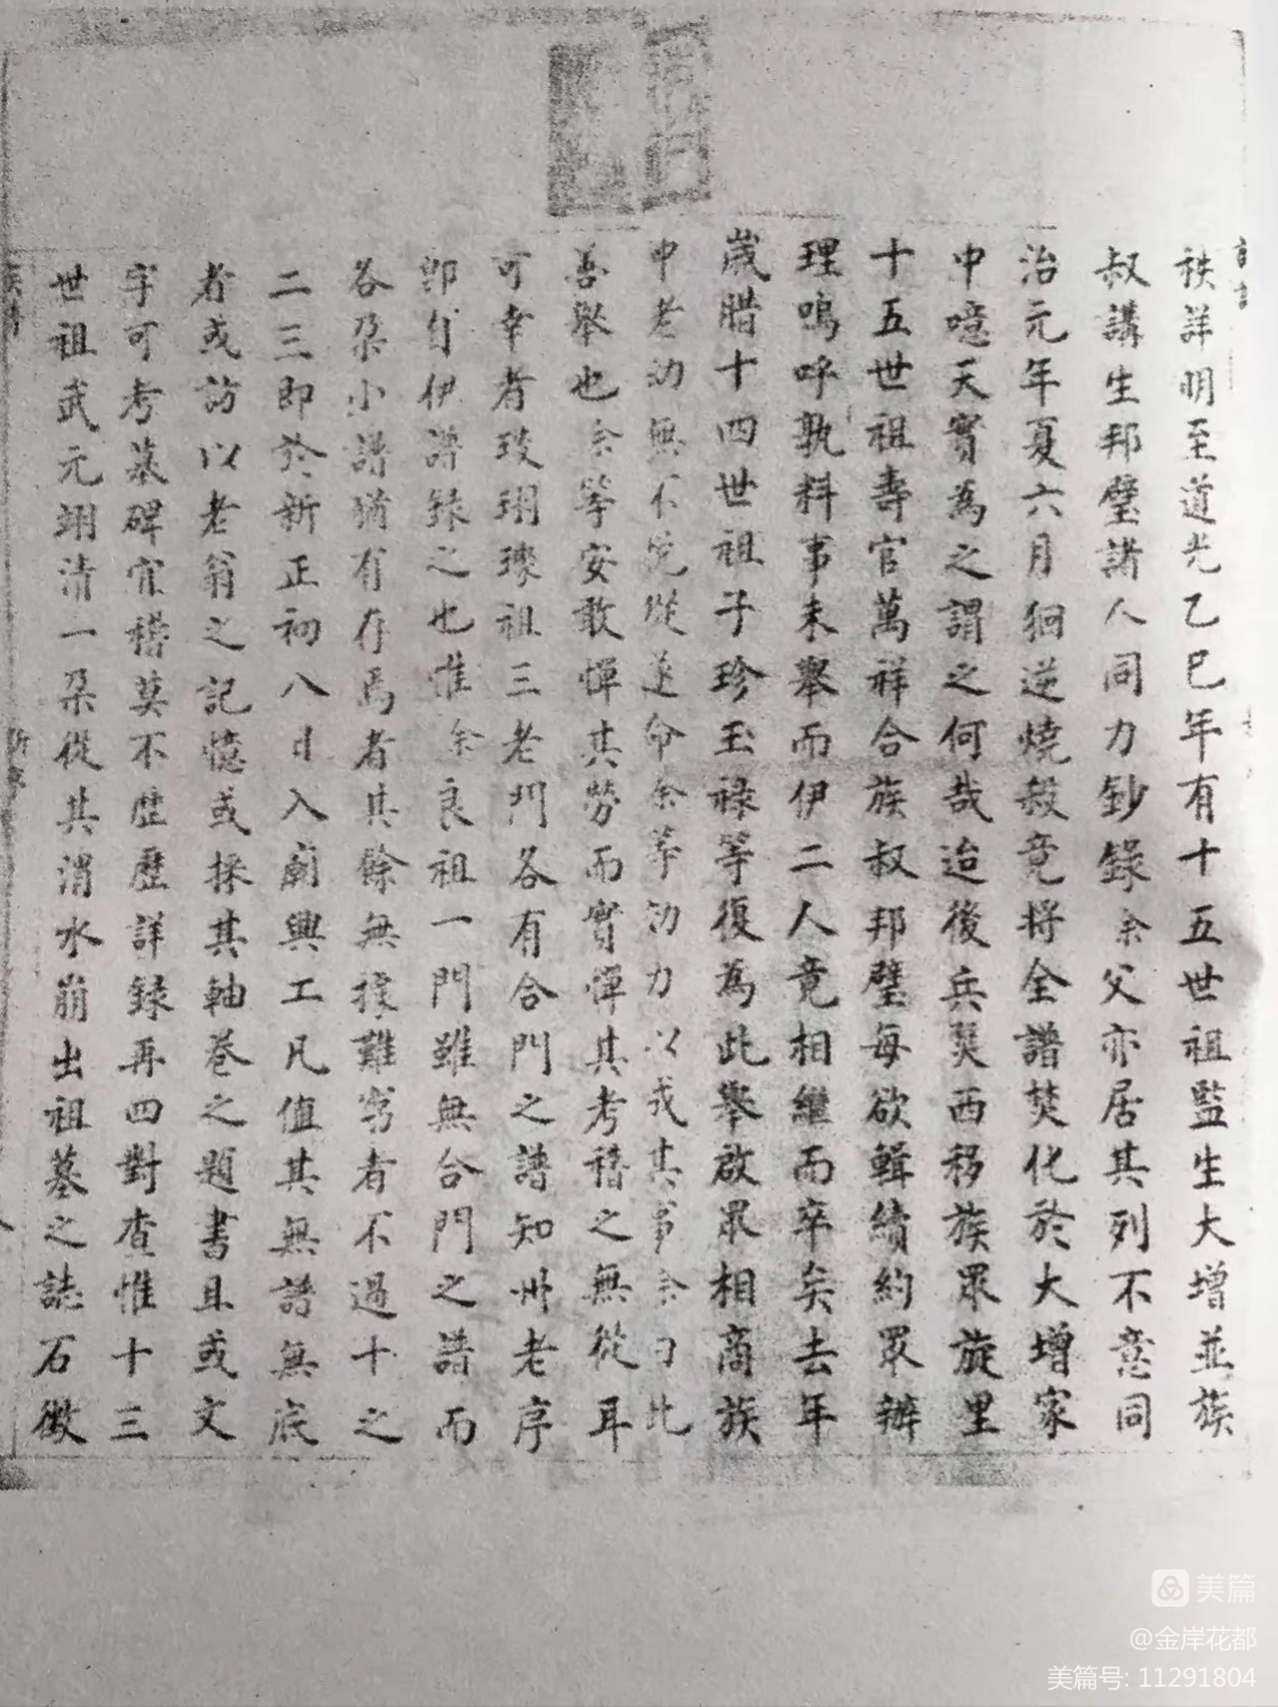 秩詳明至道光乙巳年有十五世祖監生大增並族
叔講生邦璧諸人同力鈔錄余父亦居其列不意同
治元年夏六月狪逆燒殺竟將全譜焚化於大增家
中噫天實為之謂之何哉迨後兵燹西移族眾旋里
十五世祖壽官萬祥合族叔邦璧每欲輯續約眾辦
理嗚呼孰料事未舉而伊二人竟相繼而卒矣去年
歲腊十四世祖子珍玉祿等復為此舉啟眾相商族
中老幼無不悅從遂命余等協力以成其事余曰此
善舉也余等安敢憚其勞而實憚其考稽之無從耳
可幸者玫珝璨祖三老門各有合門之譜知州老序
即自伊譜錄之也惟余良祖一門雖無合門之譜而
各朶小譜猶有存焉者其餘無據難窮者不過十之
二三即於新正初八日入廟興工凡值其無譜無底
者或訪以老翁之記憶或採其軸卷之題書且或文
字可考墓碑宜稽莫不歷歷詳録再四對查惟十三
世祖武元翊清一朶從其渭水崩出祖墓之誌石徵
美篇
@金岸花都
美篇号: 11291804